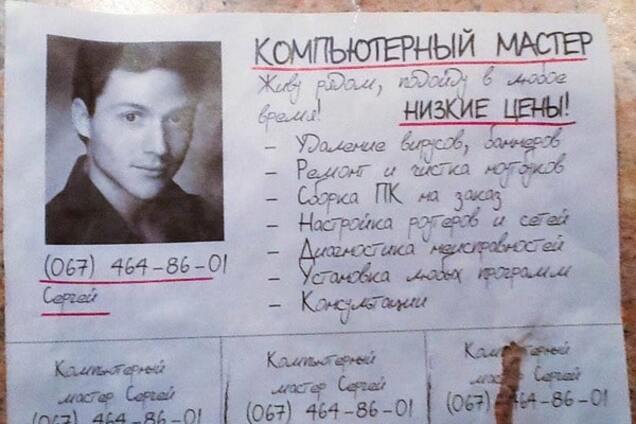 КОМПЬЮТЕРНЫЙ МАСТЕР
Живу рядом, подойду в любое
время! НИЗКИЕ ЦЕНЫ!
- Удаление вирусов, баннеров
- Ремонт и чистка ноутбуков
- Сборка ПК на заказ
- Настройка роутеров и сетей
- Диагностика неисправностей
- Установка любых программ
- Консультации
(067) 464-86-01
Сергей
Компьютерный
мастер Сергей
(067) 464-86-01
Компьютерный
мастер Сергей
(067) 464-86-01
Сергей
(067) 464-86-01